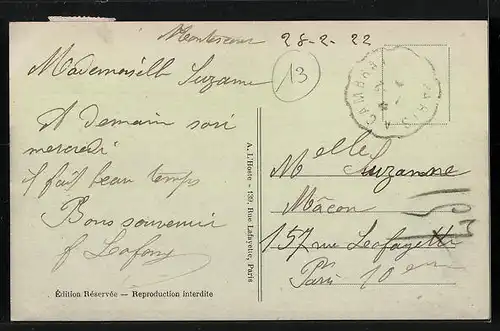 28-2-22
Mademoiselle Suzanne
13
A demain soir
mercredi
il fait beau temps
Bons souvenir
A. L'Hoste - 139, Rue Lafayette, Paris
Melle Suzanne
Mâcon
157 rue Lafayette
Paris 10em
Édition Réservée — Reproduction interdite